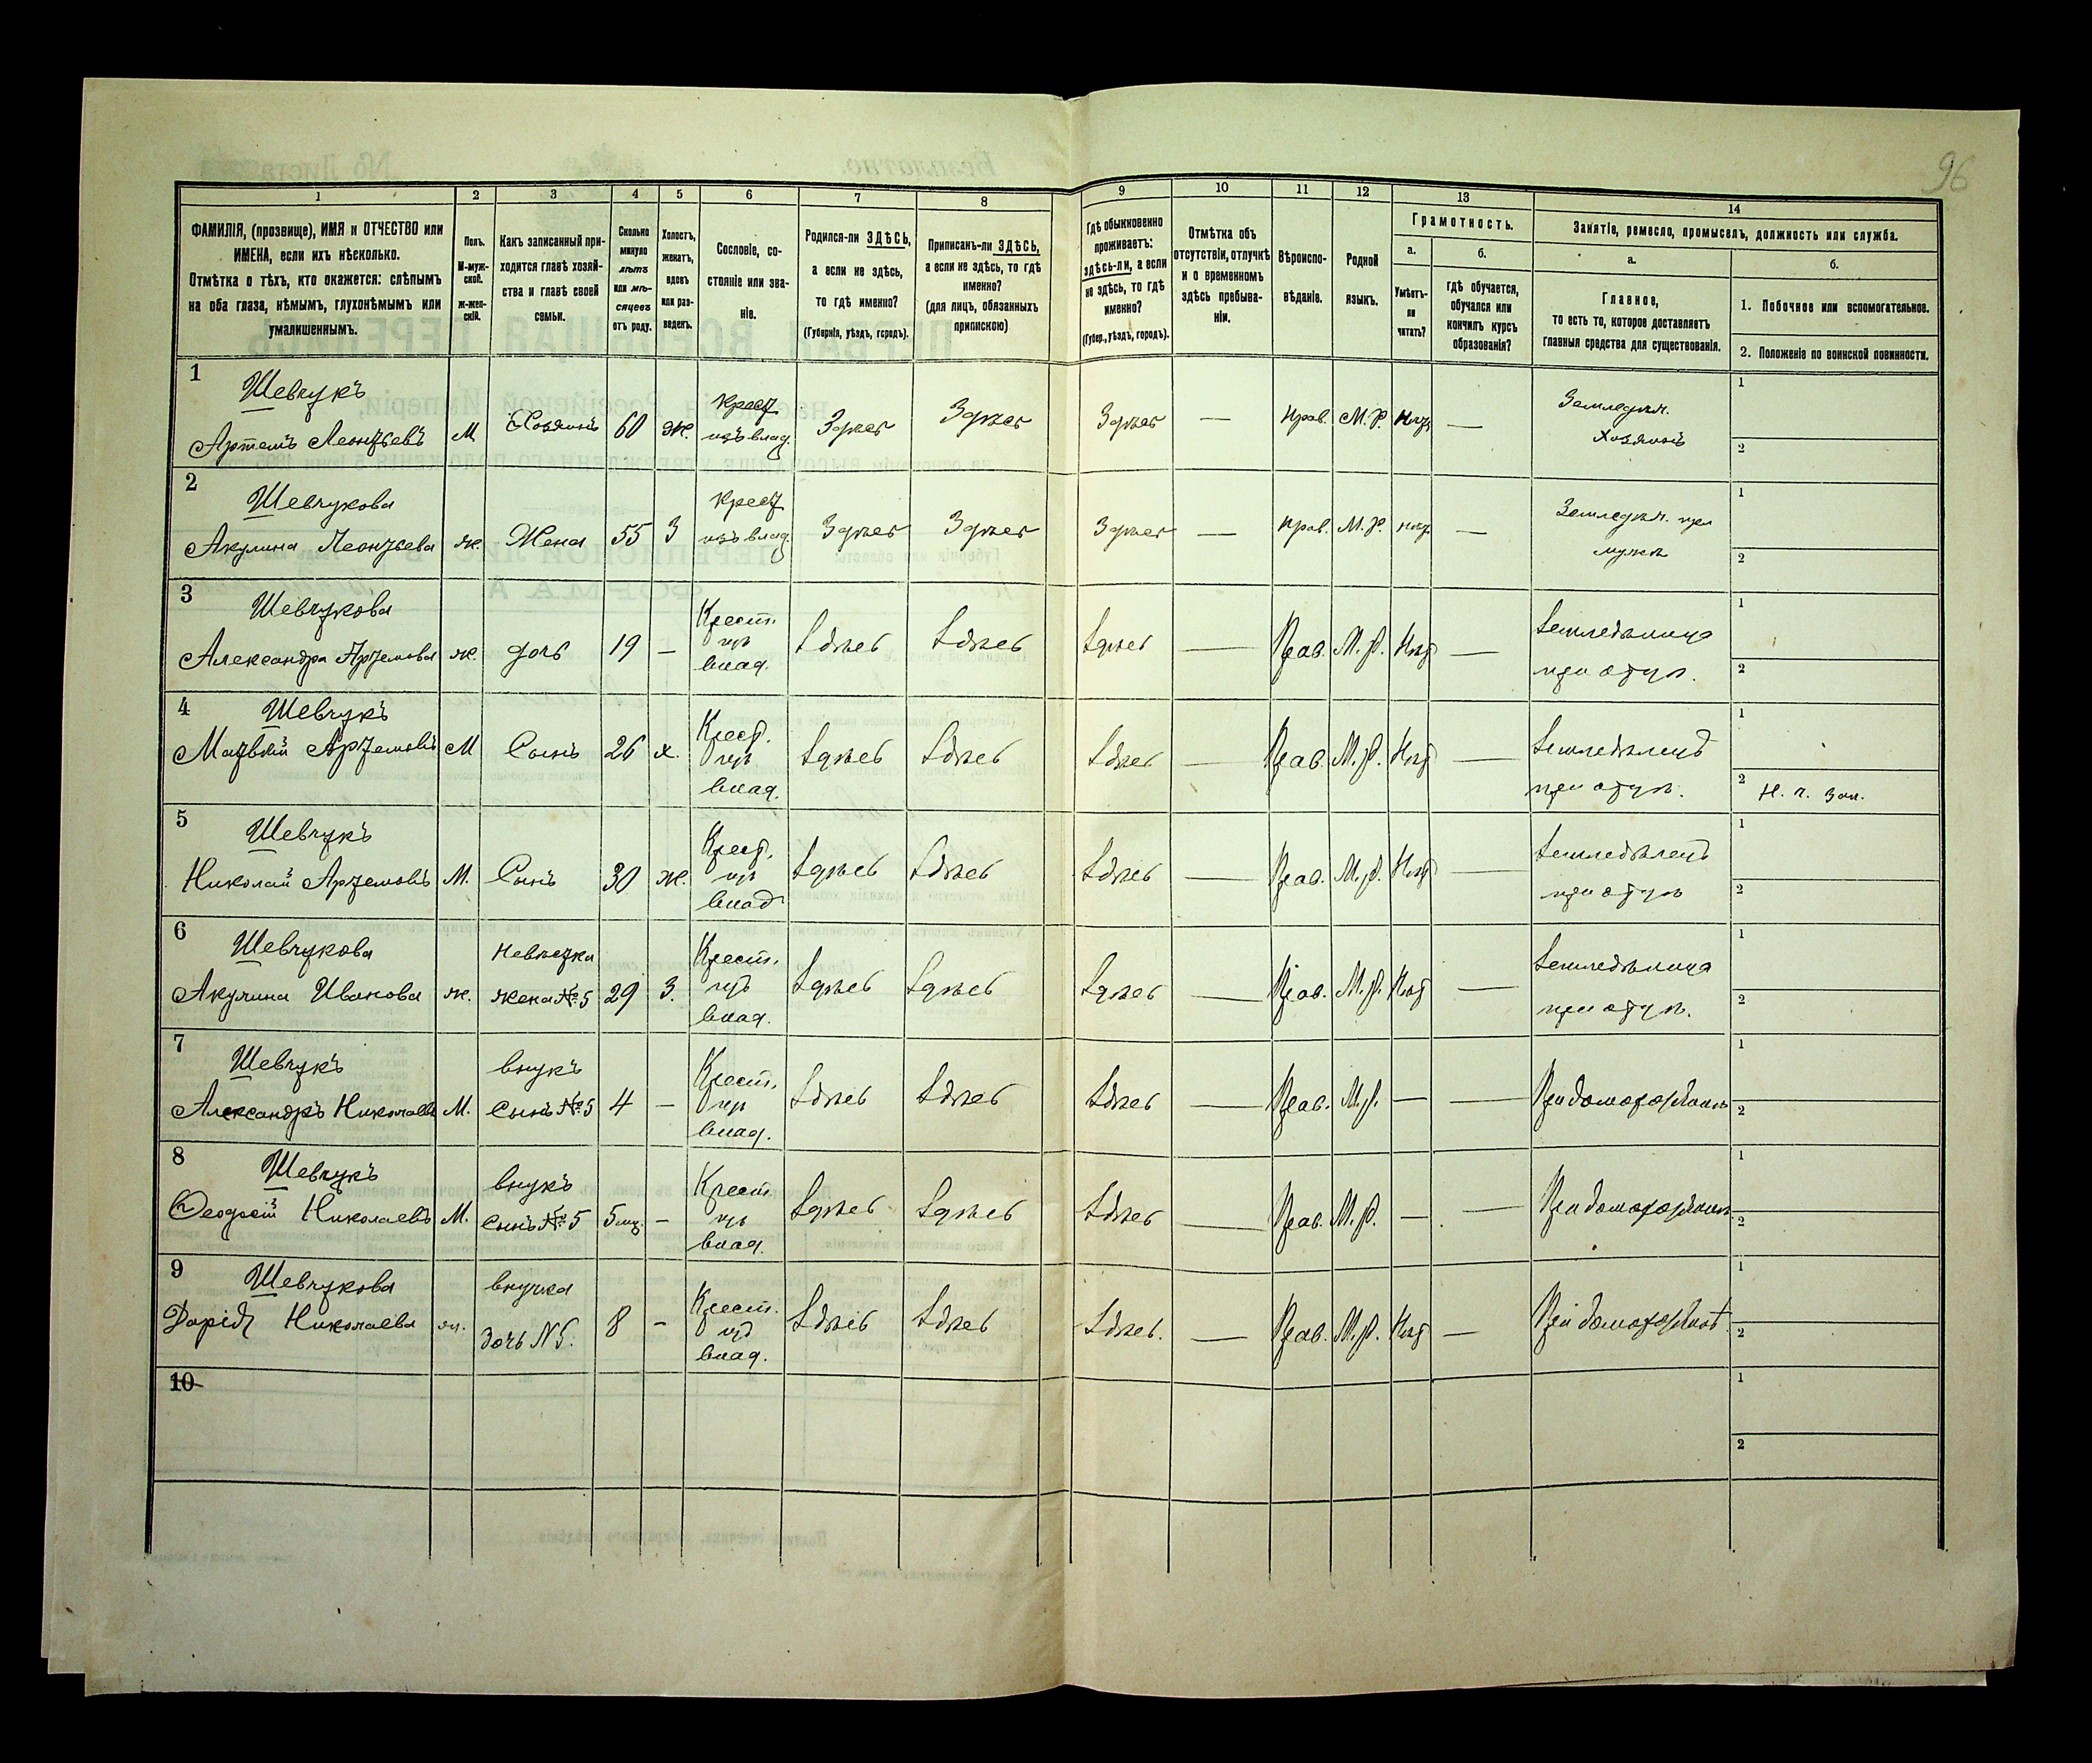 96
1 2 3 4 5 6 7 8 9 10 11 12 13 14
ФАМИЛІЯ, (прозвище), ИМЯ и ОТЧЕСТВО или
ИМЕНА, если ихъ нѣсколько.
Отмѣтка о тѣхъ, кто окажется: слѣпымъ
на оба глаза, нѣмымъ, глухонѣмымъ или
умалишеннымъ.
Полъ.
М-муж-
ской.
ж-жен-
скій.
Какъ записанный при-
ходится главѣ хозяй-
ства и главѣ своей
семьи.
Сколько
минуло
лѣтъ
или мѣ-
сяцевъ
отъ роду.
Холостъ,
женатъ,
вдовъ
или раз-
веденъ.
Сословіе, со-
стояніе или зва-
ніе.
Родился-ли ЗДѢСЬ,
а если не здѣсь,
то гдѣ именно?
(Губернія, уѣздъ, городъ).
Приписанъ-ли ЗДѢСЬ,
а если не здѣсь, то гдѣ
именно?
(для лицъ, обязанныхъ
припискою)
Гдѣ обыкновенно
проживаетъ:
здѣсь-ли, а если
не здѣсь, то гдѣ
именно?
(Губер., уѣздъ, городъ).
Отмѣтка объ
отсутствіи, отлучкѣ
и о временномъ
здѣсь пребыва-
ніи.
Вѣроиспо-
вѣданіе.
Родной
языкъ.
Грамотность.
а.
Умѣетъ-
ли
читать?
б.
гдѣ обучается,
обучался или
кончилъ курсъ
образованія?
Занятіе, ремесло, промыселъ, должность или служба.
а.
Главное,
то есть то, которое доставляетъ
главныя средства для существованія.
б.
1. Побочное или вспомогательное.
2. Положеніе по воинской повинности.
1 Шевчукъ Крест Земледѣл. 1
Артемъ Леонтьевъ М Хозяинъ 60 ж. изъ влад. Здѣсь Здѣсь Здѣсь — Прав. М. Р. Нѣт — хозяинъ 2
2 Шевчукова Крест Земледѣл. при 1
Акулина Леонтьева ж. Жена 55 З изъ влад. Здѣсь Здѣсь Здѣсь — Прав. М. Р. нѣт — мужѣ 2
3 Шевчукова Крест. Земледѣлица 1
Александра Артемова ж. дочь 19 — изъ Здѣсь Здѣсь Здѣсь — Прав. М. Р. Нѣт — при отцѣ. 2
влад.
4 Шевчукъ Крест. Земледѣлецъ 1
Матвѣй Артемовъ М Сынъ 26 х. изъ Здѣсь Здѣсь Здѣсь — Прав. М. Р. Нѣт — при отцѣ. 2
влад. Н. ч. зап.
5 Шевчукъ Крест. Земледѣлецъ 1
Николай Артемовъ М. Сынъ 30 ж. изъ Здѣсь Здѣсь Здѣсь — Прав. М. Р. Нѣт — при отцѣ 2
влад
6 Шевчукова Невѣстка Крест. Земледѣлица 1
Акулина Иванова ж. жена №5 29 З. изъ Здѣсь Здѣсь Здѣсь — Прав. М. Р. Нѣт — при отцѣ. 2
влад.
7 Шевчукъ внукъ Крест. 1
Александръ Николаевъ М. сынъ №5 4 — изъ Здѣсь Здѣсь Здѣсь — Прав. М. Р. — — При домохозяинѣ 2
влад.
8 Шевчукъ внукъ Крест. 1
Феодосій Николаевъ М. сынъ №5 5 мц. — изъ Здѣсь Здѣсь Здѣсь — Прав. М. Р. — — При домохозяинѣ 2
влад.
9 Шевчукова внучка Крест. 1
Николаева ж. дочь N5. 8 — изъ Здѣсь Здѣсь Здѣсь. — Прав. М. Р. Нѣт — При 2
влад.
10 1
2